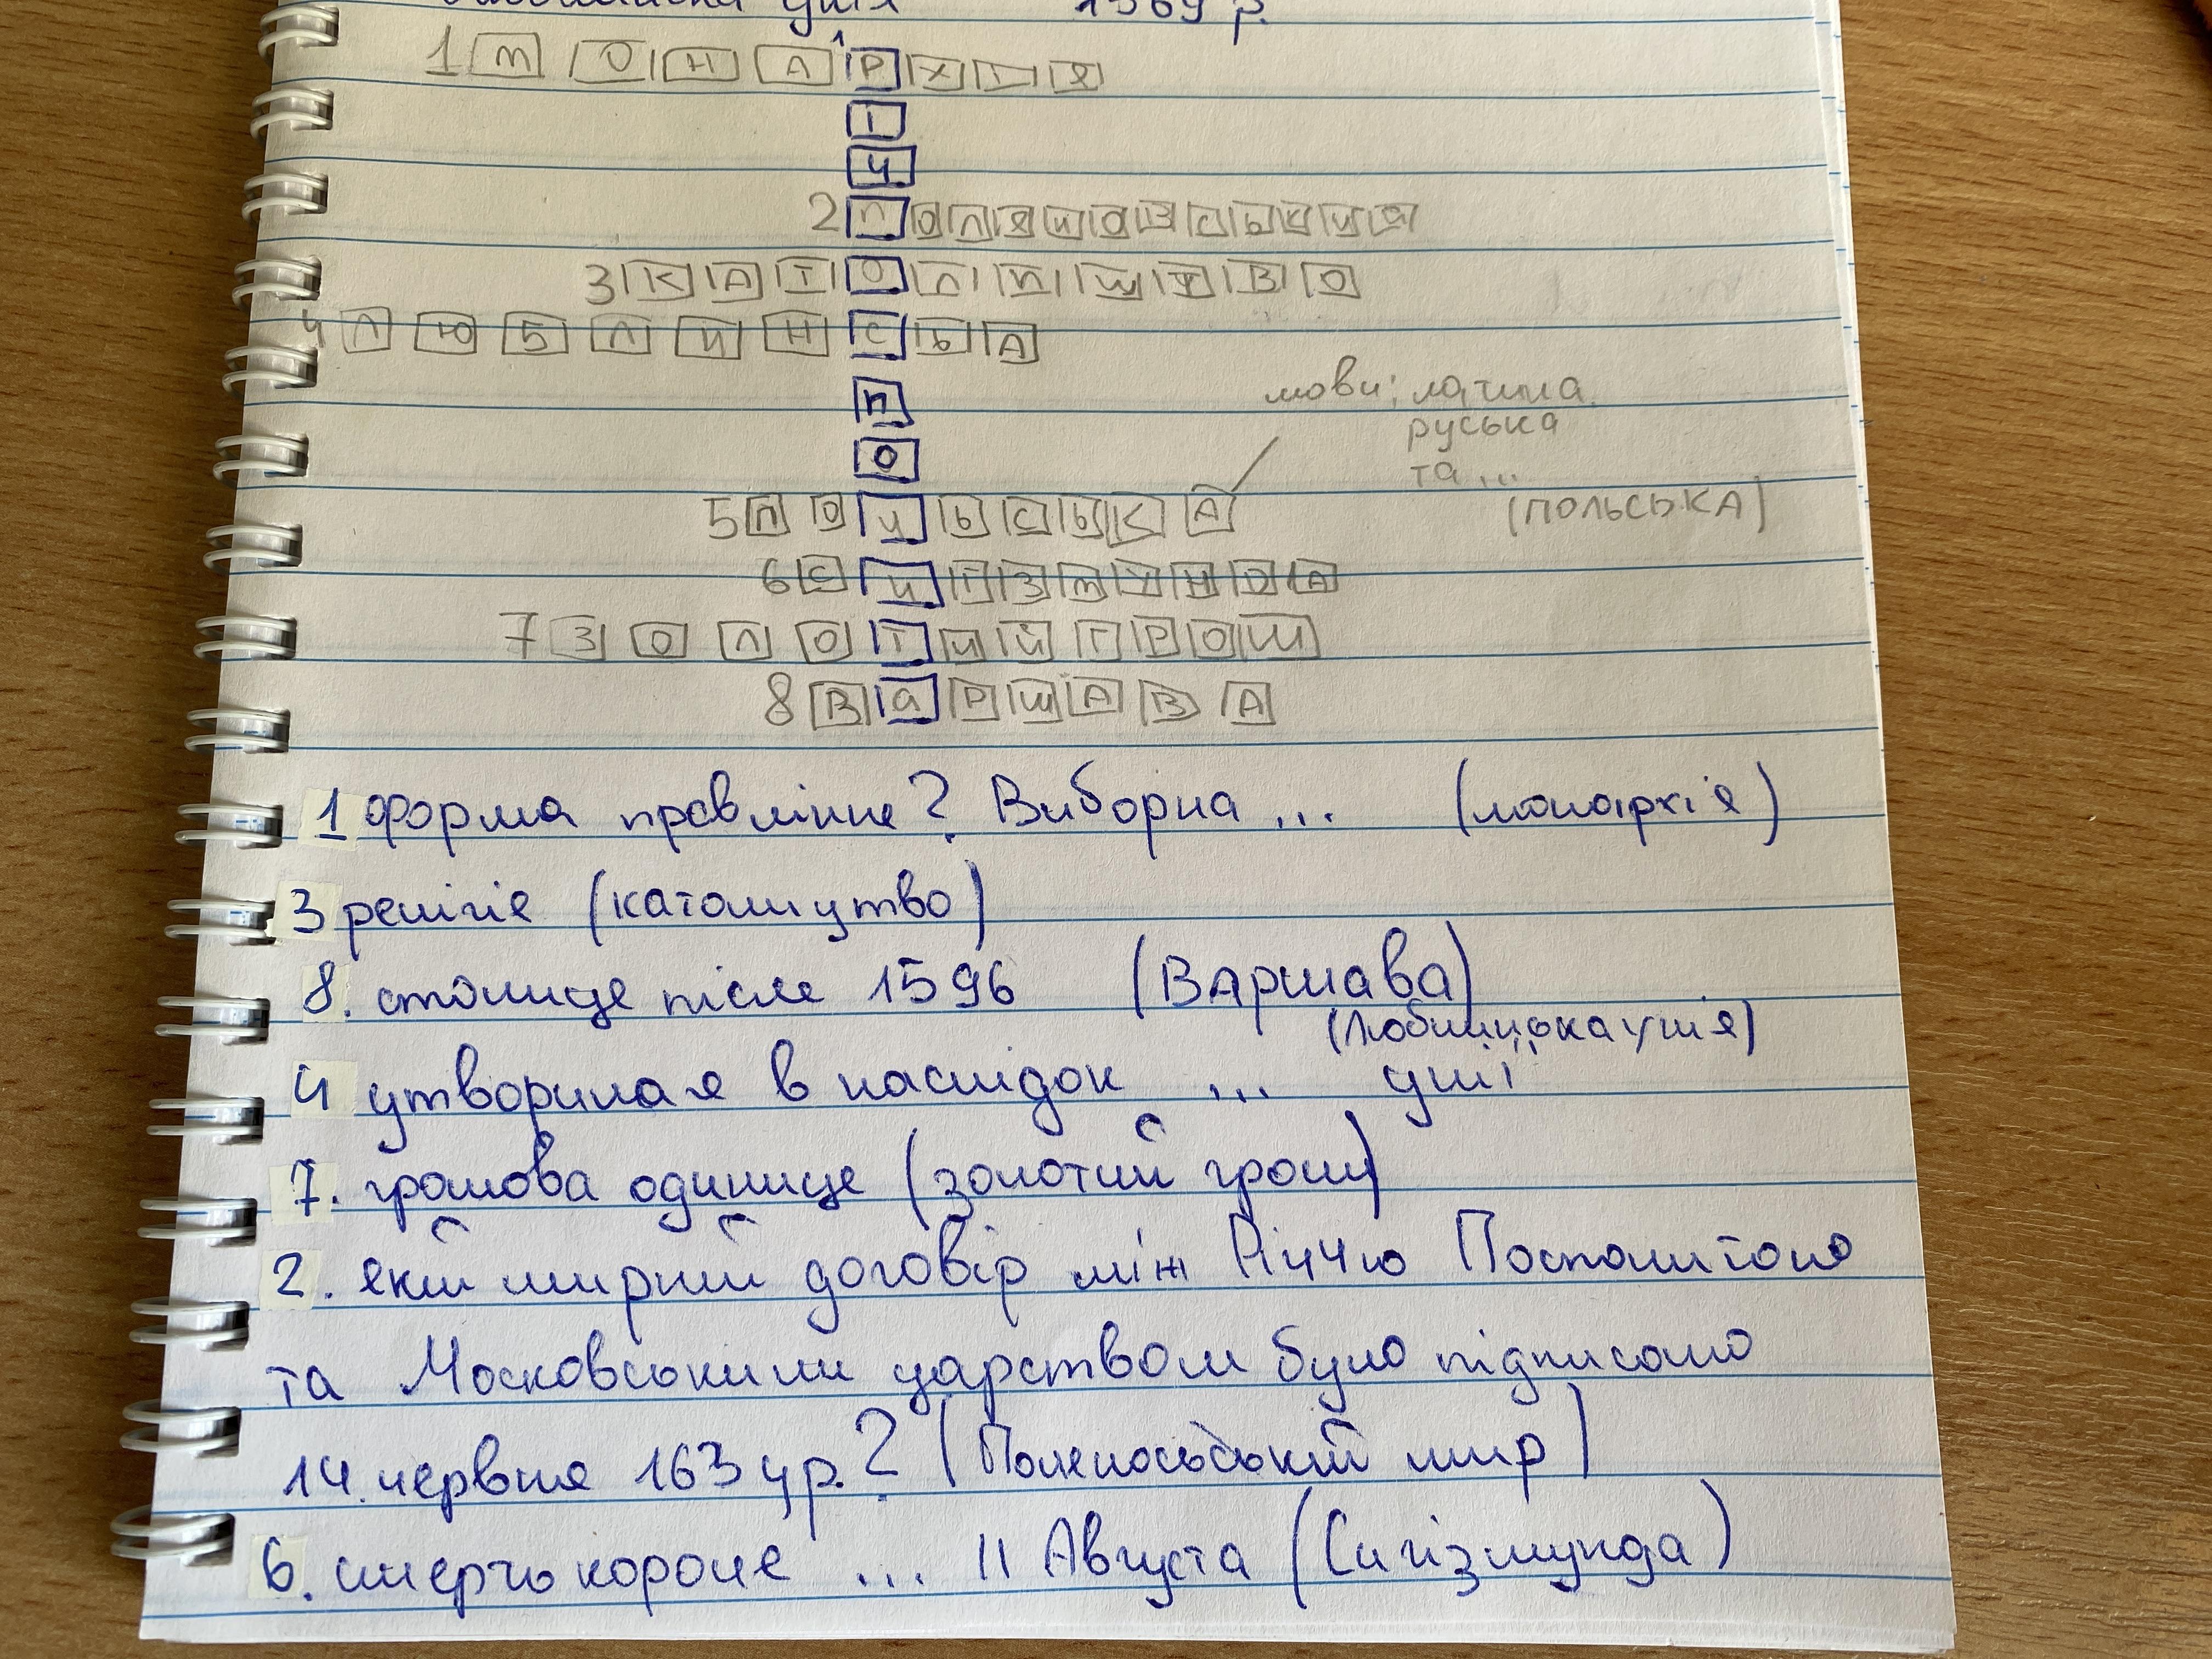 1569 р.
1 МОНАРХІЯ
І
Ч
2 ПОЛЯНОВСЬКИЯ
3 КАТОЛИЦТВО
4 ЛЮБЛИНСЬА
П
О
мови: латина
руська
та...
5 ПОЛЬСЬКА
(ПОЛЬСЬКА)
6 СИГІЗМУНДА
7 ЗОЛОТИЙГРОШ
8 ВаРШАВА
1 форма правління? Виборна ... (монархія)
3 релігія (католицтво)
8. столиця після 1596 (ВАршава)
4 утворилася в наслідок ... унії
7. грошова одиниця (золотий грош)
2. який мирний договір між Річчю Посполитою
та Московським царством було підписано
14. червня 1634р.? ( мир)
6. смерть короля ... II Августа (Сигізмунда)